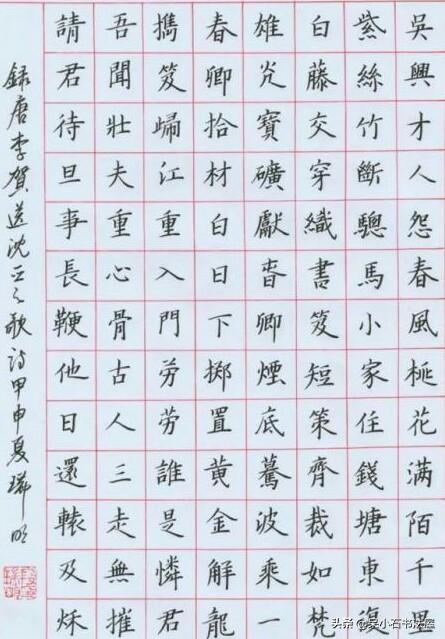 吳興才人怨春風桃花满陌千里
紫絲竹斷驄馬小家住錢塘東復
白藤交穿織書笈短策齊裁如梵
雄炗寶礦獻旾卿煙底驀波乘一
春卿拾材白日下掷置黄金解龍
攜笈歸江重入門劳劳誰是憐君
吾聞壯夫重心骨古人三走無摧
請君待旦事長鞭他日還轅及秌
録唐李賀送沈亞之歌诗甲申夏瑞明
头条 @吴小石书法屋